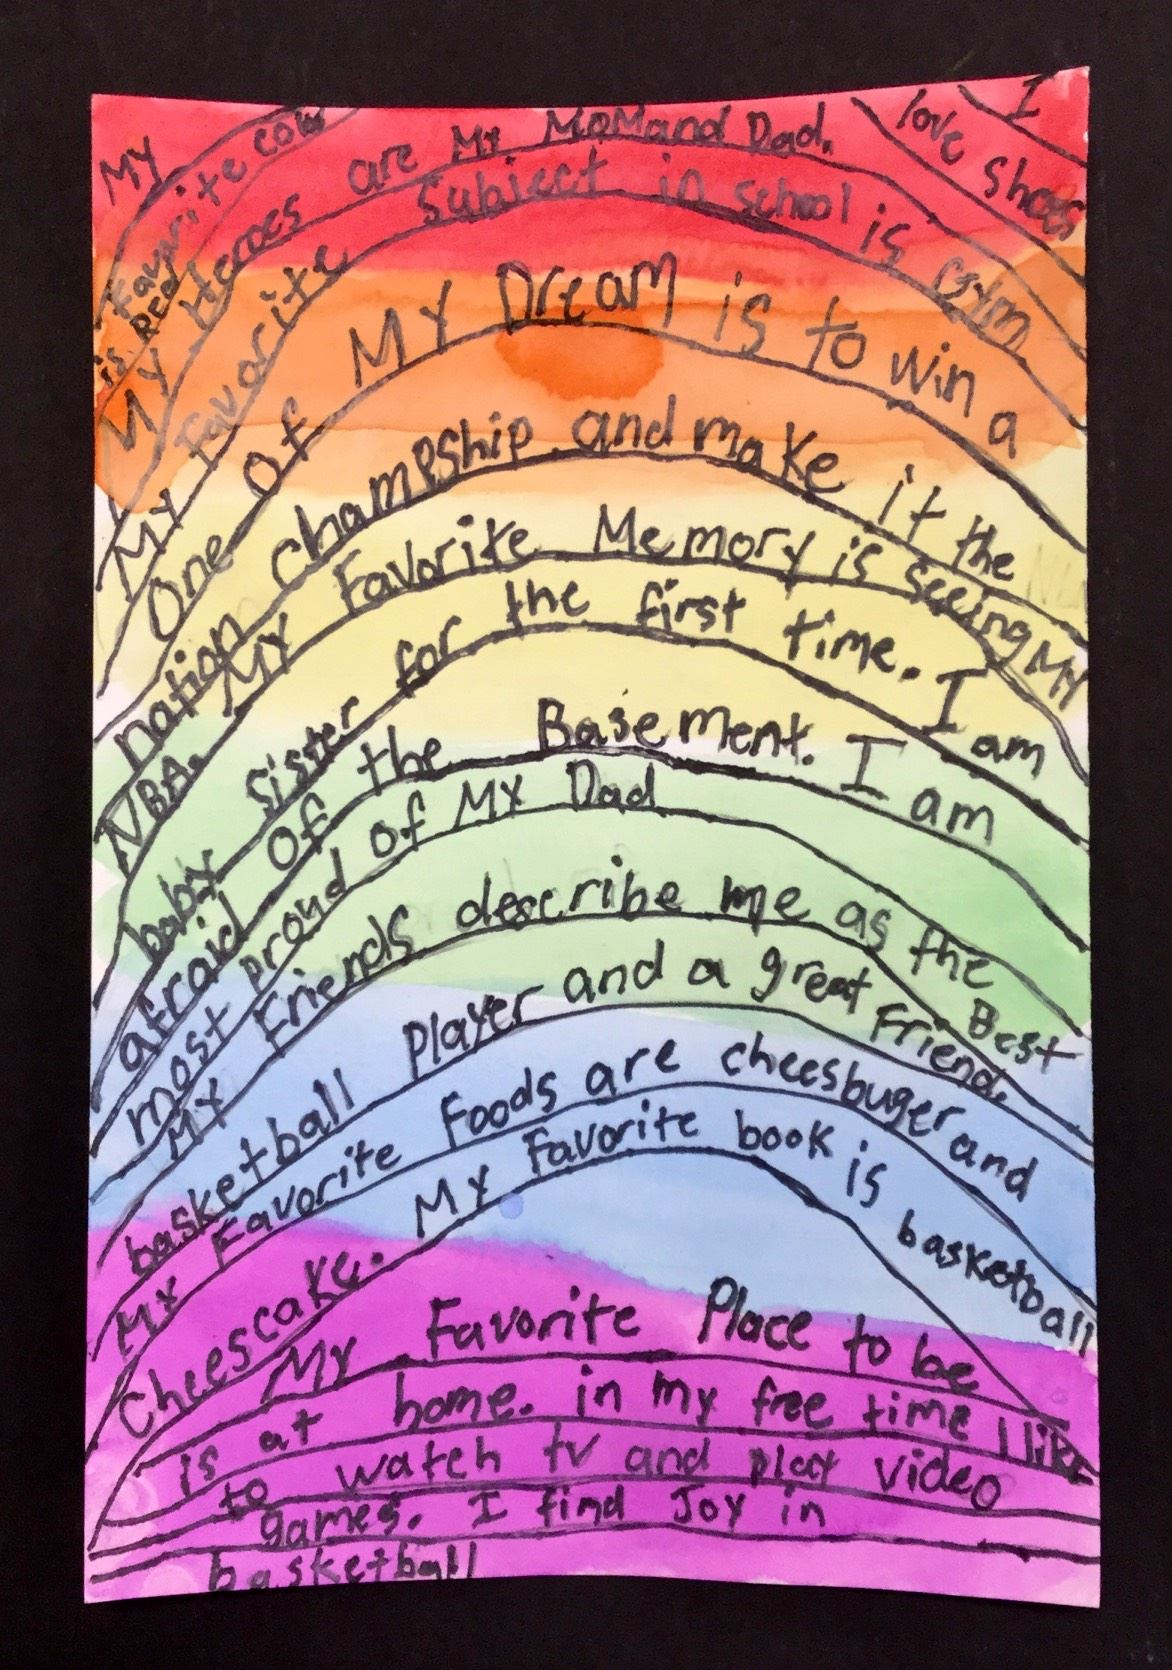 I
love shoes
My
Favorite color
is Red
My Heroes are My MoMand Dad.
My Favorite Subject in school is Gym
One Of My Dream is to win a
nation champship and make it the
NBA. My Favorite Memory is seeing My
baby sister for the first time. I am
afraid Of the Basement. I am
most proud of My Dad
My Friends describe me as the Best
basketball Player and a great Friend.
My Favorite Foods are cheesbuger and
Cheescake. My Favorite book is basketball
My Favorite Place to be
is at home. in my free time I like
to watch tv and play video
games. I find Joy in
basketball